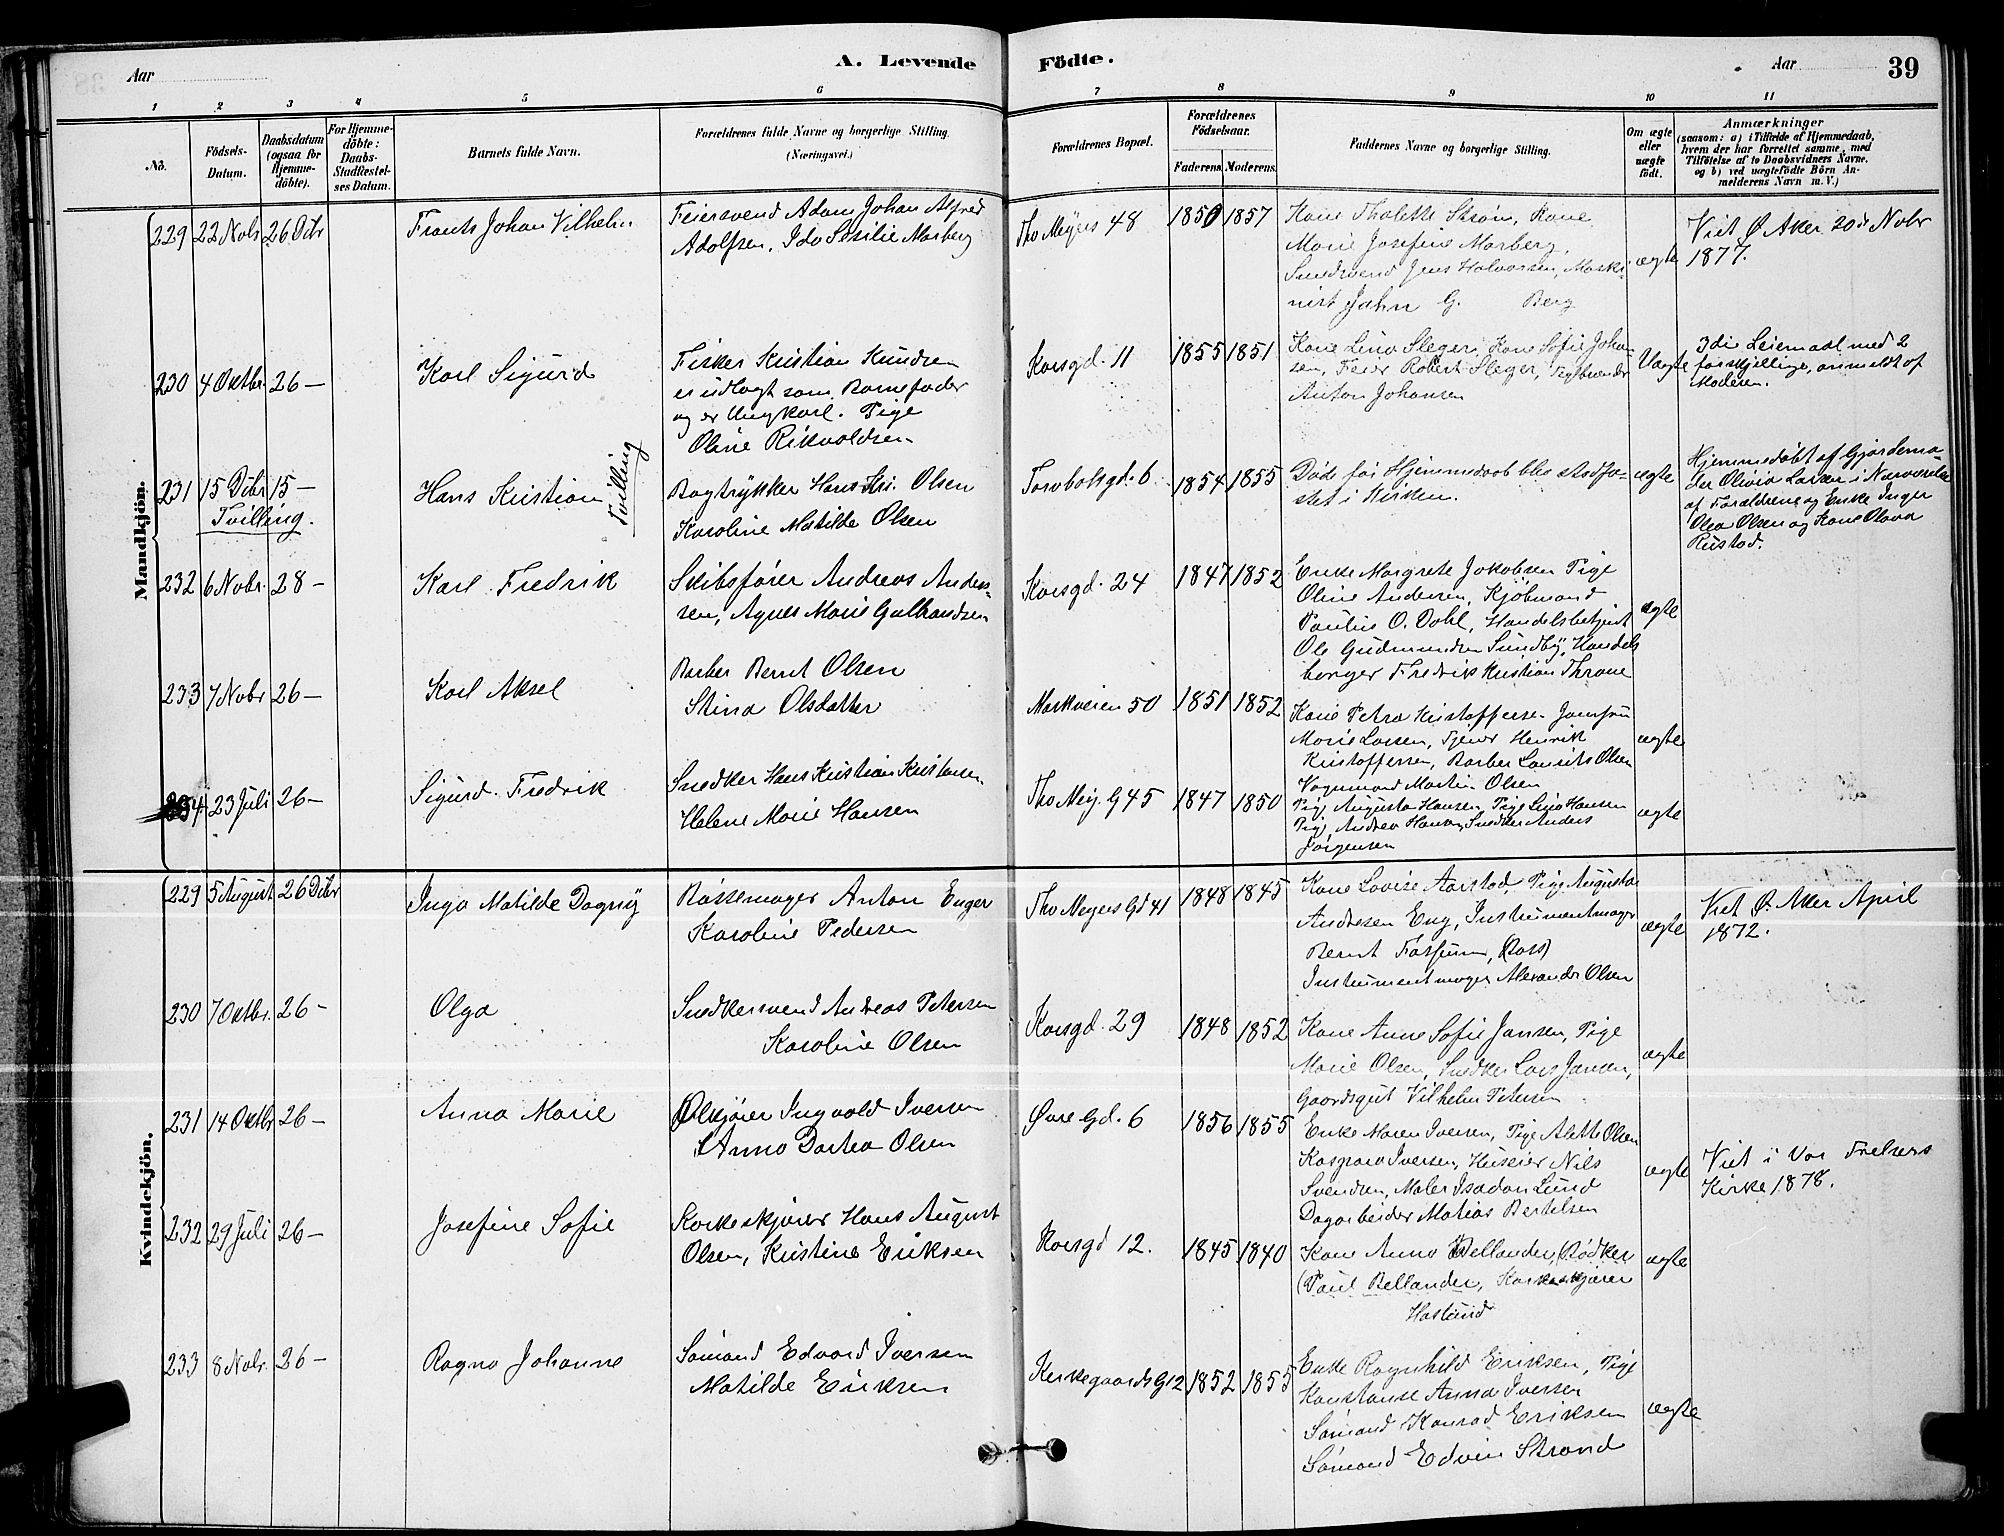 Aar
A. Levende
Födte.
Aar
39
1 2 3 4 5 6 7 8 9 10 11
No.
Födsels-
Datum.
Daabsdatum
(ogsaa for
Hjemme-
döbte).
For Hjemme-
döbte:
Daabs-
Stadfæstel-
ses Datum.
Barnets fulde Navn.
Forældrenes fulde Navne og borgerlige Stilling.
(Næringsvei.)
Forældrenes Bopæl.
Forældrenes
Födselsaar.
Faderens. Moderens.
Faddernes Navne og borgerlige Stilling.
Om ægte
eller
uægte
födt.
Anmærkninger
(saasom: a) i Tilfælde af Hjemmedaab,
hvem der har forrettet samme, med
Tilföielse af to Daabsvidners Navne.
og b) ved uægtefödte Börn An-
melderens Navn m. V.)
Mandkjön.
229 22 Nobr 26 Dcbr
Frants Johan Vilhelm
Feiersvend Adam Johan Alfred
Adolfsen, Ida Sesilie Marberg
Tho Meyers 48
1850 1857
Kone Thalette Strøm, Kone
Marie Josefine Marberg,
Smedsvend Jens Halvorsen, Maski-
nist Jahn G. Berg
ægte
Viet Ø. Aker 20de Nobr
1877.
230 4 Oktbr. 26 —
Karl Sigurd
Fisker Kristian Knudsen
er udlagt som Barnefader
og er Ungkarl. Pige
Oline Rikvoldsen
Korsgd. 11
1855 1851
Kone Lina Sleger, Kone Sofie Johan-
sen, Feier Robert Sleger,
Anton Johansen
Uægte
3die Leiemaal med 2
forskjellige, anmeldt af
Moderen.
231 15 Dcbr 15 —
Tvilling.
Hans Kristian
Tvilling
Bogtrykker Hans Kri. Olsen
Karoline Matilde Olsen
Torvbaksgd. 6
1854 1855
Døde før Hjemmedaab blev stadfæ-
stet i Kirken.
ægte
Hjemmedøbt af Gjordemo-
der Olivia Larsen i Nærværelse
af Forældrene og Enke Inger
Olea Olsen og Kone Olava
Rustad.
232 6 Nobr. 28 —
Karl Fredrik
Skibsfører Andreas Ander-
sen, Agnes Marie Gulbrandsen
Korsgd. 24
1847 1852
Enke Margrete Jakobsen Pige
Oline Andersen, Kjøbmand
Paulus O. Dahl, Handelsbetjent
Ole Gudmundsen Sundby, Handels
borger Fredrik Kristian Throne
ægte
233 7 Nobr 26 —
Karl Aksel
Barber Bernt Olsen
Stina Olsdatter
Markveien 50
1851 1852
Kone Petra Kristoffersen Jomfru
Marie Larsen, Tjener Henrik
Kristoffersen, Barber Laurits Olsen
Vognmand Martin Olsen
ægte
234 23 Juli 26 —
Sigurd Fredrik
Snedker Hans Kristian Kristiansen
Helene Marie Hansen
Tho Mey. G 45
1847 1850
Pige Augusta Hansen, Pige Lina Hansen
Pige Andrea Hansen, Snedker Anders
Jørgensen
ægte
Kvindekjön.
229 5 August 26 Dcbr
Inga Matilde Dagny
Bøssemager Anton Enger
Karoline Pedersen
Tho Meyers Gd 41
1848 1845
Kone Lovise Aarstad, Pige Augusta
Andresen Eng, Instrumentmager
Bernt Fossum, (Bors)
Instrumentmager Alexander Olsen
ægte
Viet Ø. Aker April
1872.
230 7 Oktbr. 26 —
Olga
Snedkersvend Andreas Petersen
Karoline Olsen
Korsgd. 29
1848 1852
Kone Anne Sofie Jansen, Pige
Marie Olsen, Snedker Lars Jansen,
Gaardsgut Vilhelm Petersen
ægte
231 14 Oktbr 26 —
Anna Marie
Ølkjører Ingvald Iversen
Anna Dortea Olsen
Øvre Gd. 6
1856 1855
Enke Maren Iversen, Pige Alette Olsen
Kaspara Iversen, Huseier Nils
Svendsen, Maler Isadan Lund
Dagarbeider Matias Bertelsen
ægte
Viet i Vor Frelsers
Kirke 1878.
232 29 Juli 26 —
Josefine Sofie
Korkeskjærer Hans August
Olsen, Kristine Eriksen
Korsgd 12.
1845 1840
Kone Anna Bellander, (Bødker
(Paul Bellander, Korkeskjærer
Haslund
ægte
233 8 Nobr. 26 —
Ragna Johanne
Sømand Edvard Iversen
Matilde Eriksen
Kirkegaards G 12
1852 1855
Enke Ragnhild Eriksen, Pige
Konstanse Anna Iversen
Sømand Konrad Eriksen
Sømand Edvin Strand
ægte